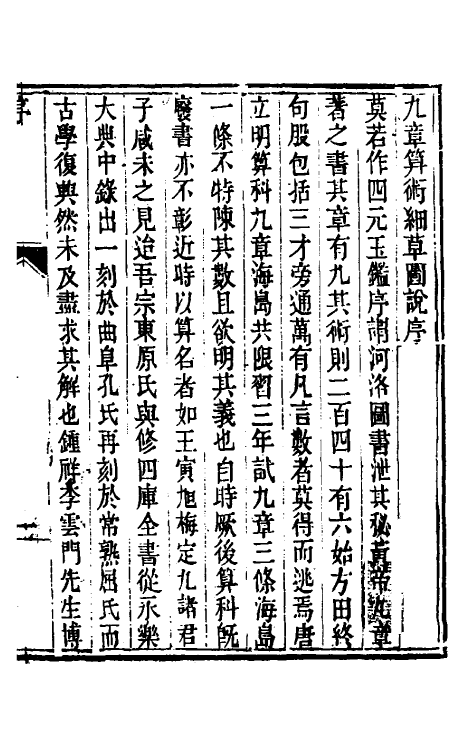 九章算術細草圖說序
莫若作四元玉鑑序謂河洛圖書泄其秘黃帝九章
著之書其章有九其術則二百四十有六始方田終
句股包括三才旁通萬有凡言數者莫得而逃焉唐
立明算科九章海島共限習三年試九章三條海島
一條不特陳其數且欲明其義也自時厥後算科旣
廢書亦不彰近時以算名者如王寅旭梅定九諸君
子咸未之見迨吾宗東原氏與修四庫全書從永樂
大典中錄出一刻於曲阜孔氏再刻於常熟屈氏而
古學復興然未及盡求其解也鍾祥李雲門先生博
序
一